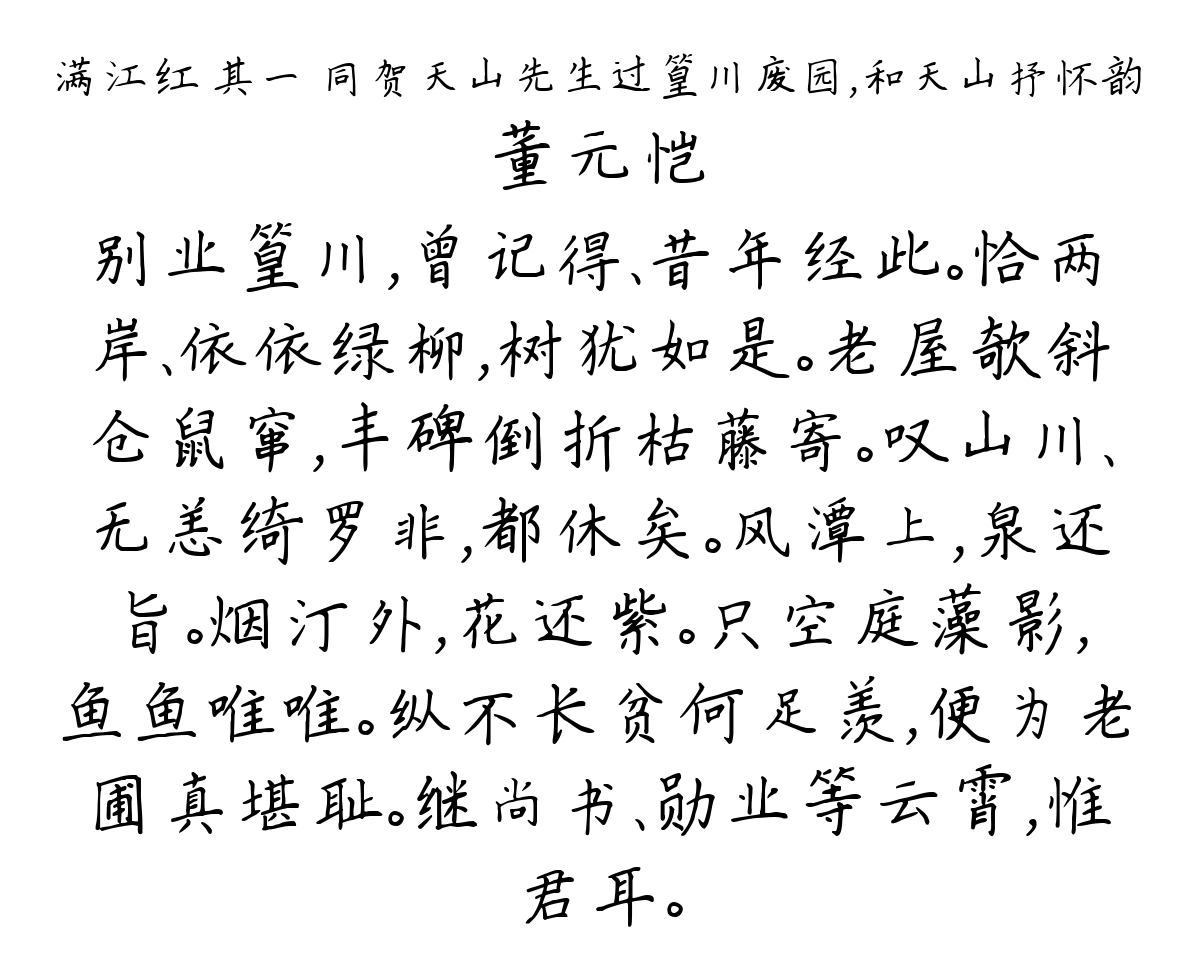 满江红 其一 同贺天山先生过篁川废园,和天山抒怀韵
董元恺
别业篁川,曾记得、昔年经此。恰两
岸、依依绿柳,树犹如是。老屋欹斜
仓鼠窜,丰碑倒折枯藤寄。叹山川、
无恙绮罗非,都休矣。风潭上,泉还
旨。烟汀外,花还紫。只空庭藻影,
鱼鱼唯唯。纵不长贫何足羡,便为老
圃真堪耻。继尚书、勋业等云霄,惟
君耳。